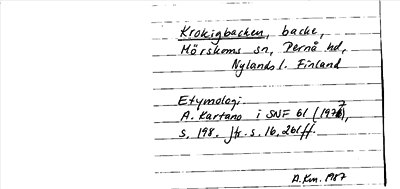 Krokigbacken, backe,
Mörskoms sn, Pernå hd,
Nylands l. Finland
Etymologi.
A. Kartano i SNF 61 (1977),
s. 198. Jfr. s. 16, 261 ff.
A.Km. 1987